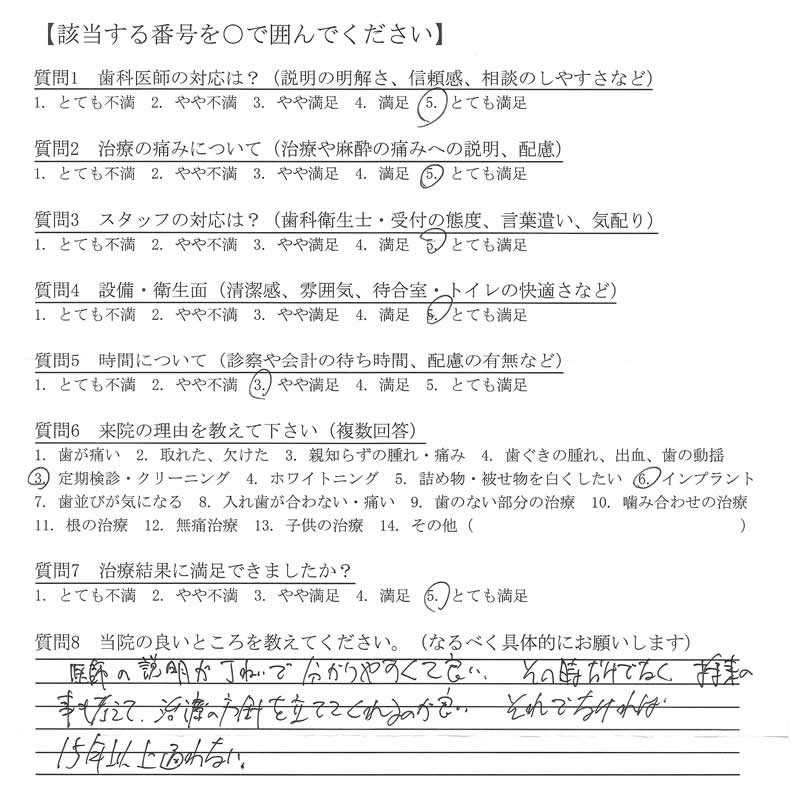 【該当する番号を○で囲んでください】
質問1　歯科医師の対応は？（説明の明解さ、信頼感、相談のしやすさなど）
1. とても不満　2. やや不満　3. やや満足　4. 満足　5. とても満足
質問2　治療の痛みについて（治療や麻酔の痛みへの説明、配慮）
1. とても不満　2. やや不満　3. やや満足　4. 満足　5. とても満足
質問3　スタッフの対応は？（歯科衛生士・受付の態度、言葉遣い、気配り）
1. とても不満　2. やや不満　3. やや満足　4. 満足　5. とても満足
質問4　設備・衛生面（清潔感、雰囲気、待合室・トイレの快適さなど）
1. とても不満　2. やや不満　3. やや満足　4. 満足　5. とても満足
質問5　時間について（診察や会計の待ち時間、配慮の有無など）
1. とても不満　2. やや不満　3. やや満足　4. 満足　5. とても満足
質問6　来院の理由を教えて下さい（複数回答）
1. 歯が痛い　2. 取れた、欠けた　3. 親知らずの腫れ・痛み　4. 歯ぐきの腫れ、出血、歯の動揺
3. 定期検診・クリーニング　4. ホワイトニング　5. 詰め物・被せ物を白くしたい　6. インプラント
7. 歯並びが気になる　8. 入れ歯が合わない・痛い　9. 歯のない部分の治療　10. 噛み合わせの治療
11. 根の治療　12. 無痛治療　13. 子供の治療　14. その他（　　　　　　　　　　）
質問7　治療結果に満足できましたか？
1. とても不満　2. やや不満　3. やや満足　4. 満足　5. とても満足
質問8　当院の良いところを教えてください。（なるべく具体的にお願いします）
医師の説明が丁ねいで分かりやすくて良い。その時だけでなく将来の
事も考えて、治療の方針を立ててくれるのが良い　それでなければ
15年以上通わない。